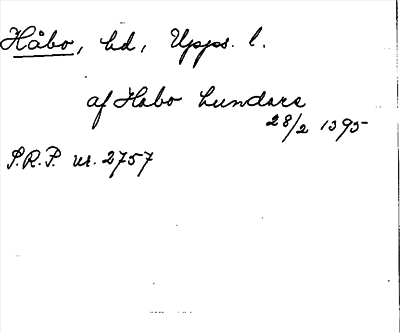 Håbo, hd, Upps. l.
af Habo hundare
28/2 1395
S.R.P. nr. 2757